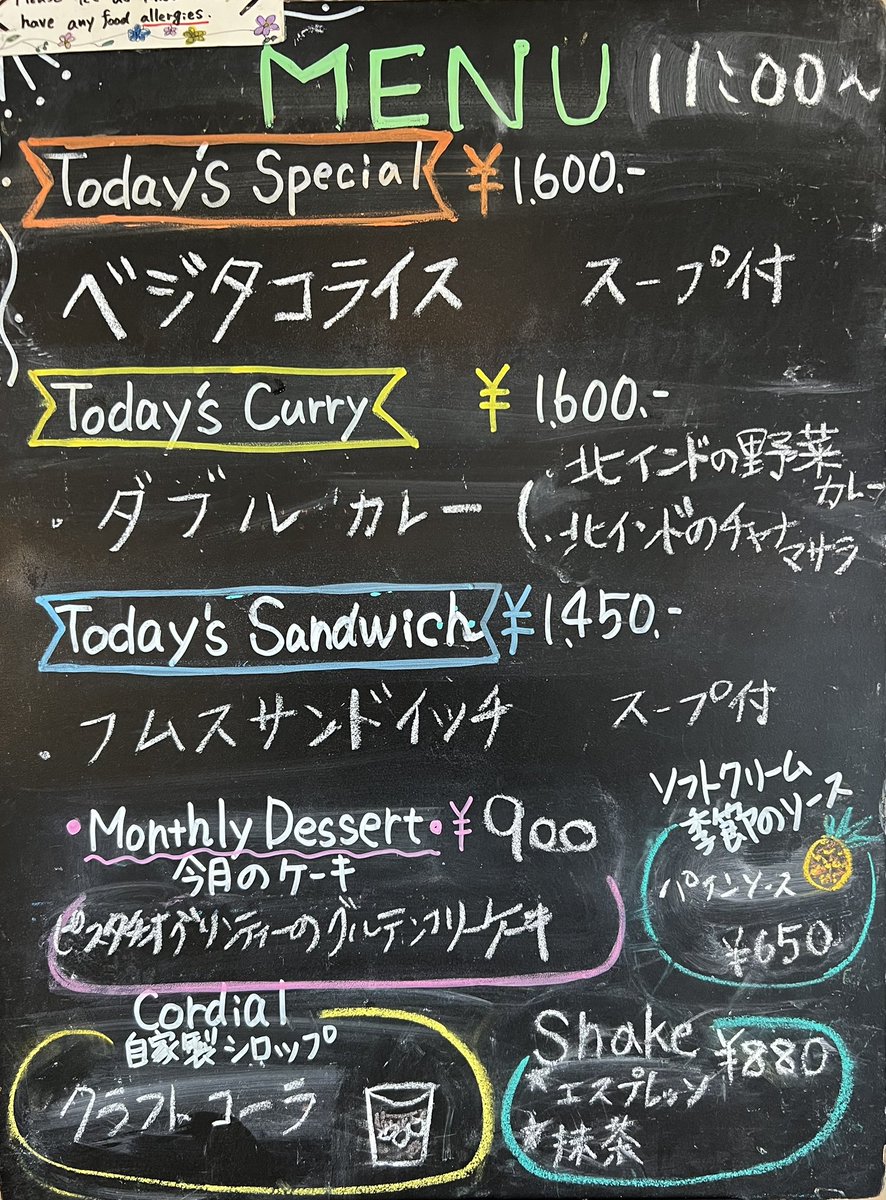 have any food allergies.
MENU 11:00〜
Today's Special ¥1.600.-
ベジタコライス スープ付
Today's Curry ¥1.600.-
・ダブルカレー(・北インドの野菜カレー
・北インドのチャナマサラ
Today's Sandwich ¥1.450.-
・フムスサンドイッチ スープ付
・Monthly Dessert・¥900
今月のケーキ
ピスタチオグリンティーのグルテンフリーケーキ
ソフトクリーム
季節のソース
パインソース
¥650
Cordial
自家製シロップ
クラフトコーラ
Shake ¥880
★エスプレッソ
★抹茶